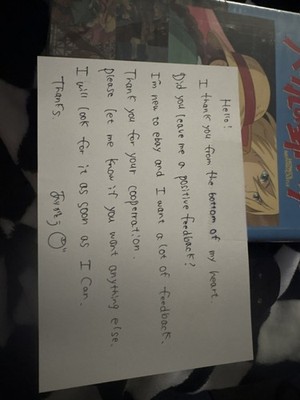 Hello!
I thank you from the bottom of my heart
Did you leave me a positive feedback?
I'm new to ebay and I want a lot of feedback.
Thank you for your cooperration.
please let me know if you want anything else.
I will look for it as soon as I can.
Thanks.